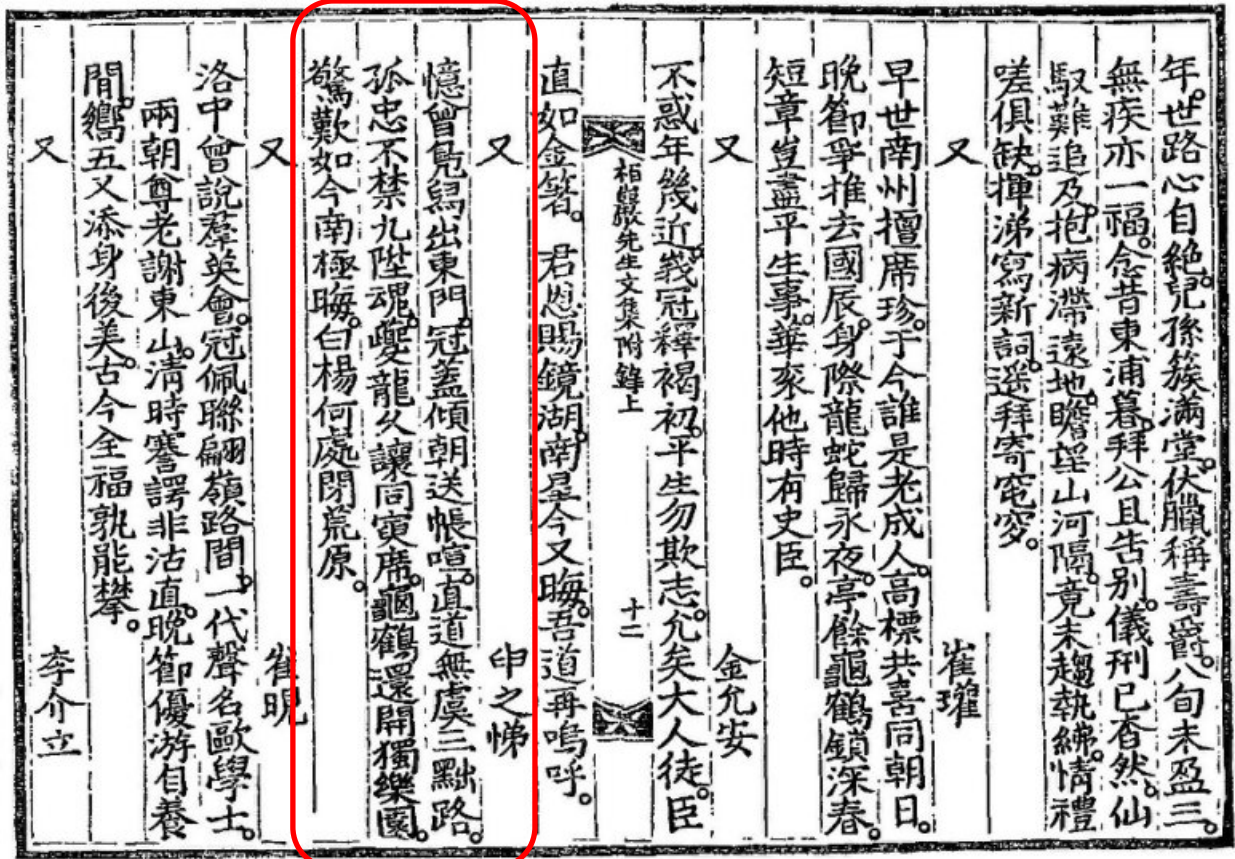 年。世路心自絶。兒孫簇滿堂。伏臘稱壽爵。八旬未盈三。
無疾亦一福。念昔東浦暮。拜公且告别。儀刑已杳然。仙
馭難追及。抱病滯遠地。瞻望山河隔。竟未趨執紼。情禮
嗟俱缺。揮涕寫新詞。遥拜寄窀穸。
又 崔瓘
早世南州擅席珍。于今誰是老成人。高標共喜同朝日。
晩節爭推去國辰。身際龍蛇歸永夜。亭餘龜鶴鎖深春。
短章豈盡平生事。華衮他時有史臣。
又 金允安
不惑年幾近。峩冠釋褐初。平生勿欺志。允矣大人徒。臣
栢巖先生文集附錄上 十二
直如金箸。君恩賜鏡湖。南星今又晦。吾道再嗚呼。
又 申之悌
憶曾鳧舄出東門。冠盖傾朝送帳喧。直道無虞三黜路。
孤忠不禁九陛魂。夔龍久讓同寅席。龜鶴還開獨樂園。
驚歎如今南極晦。白楊何處閉荒原。
又 崔晛
洛中曾說羣英會。冠佩聯翩嶺路間。一代聲名歐學士。
兩朝尊老謝東山。清時謇諤非沽直。晩節優游自養
間。嚮五又添身後美。古今全福孰能攀。
又 李介立